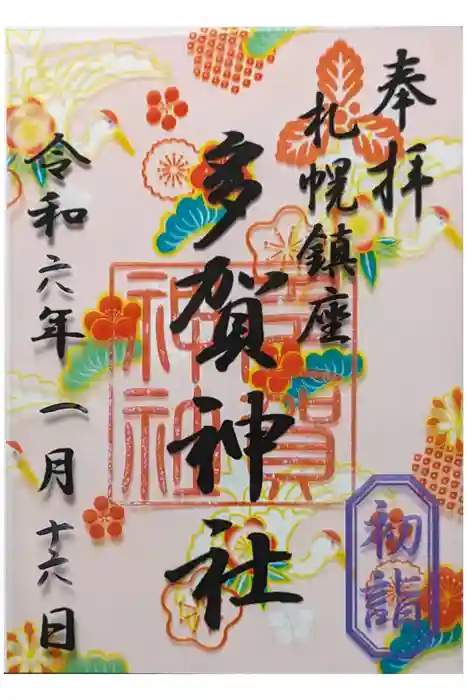 奉拝
札幌鎮座
多賀神社
多賀神社
令和六年一月十六日
初詣